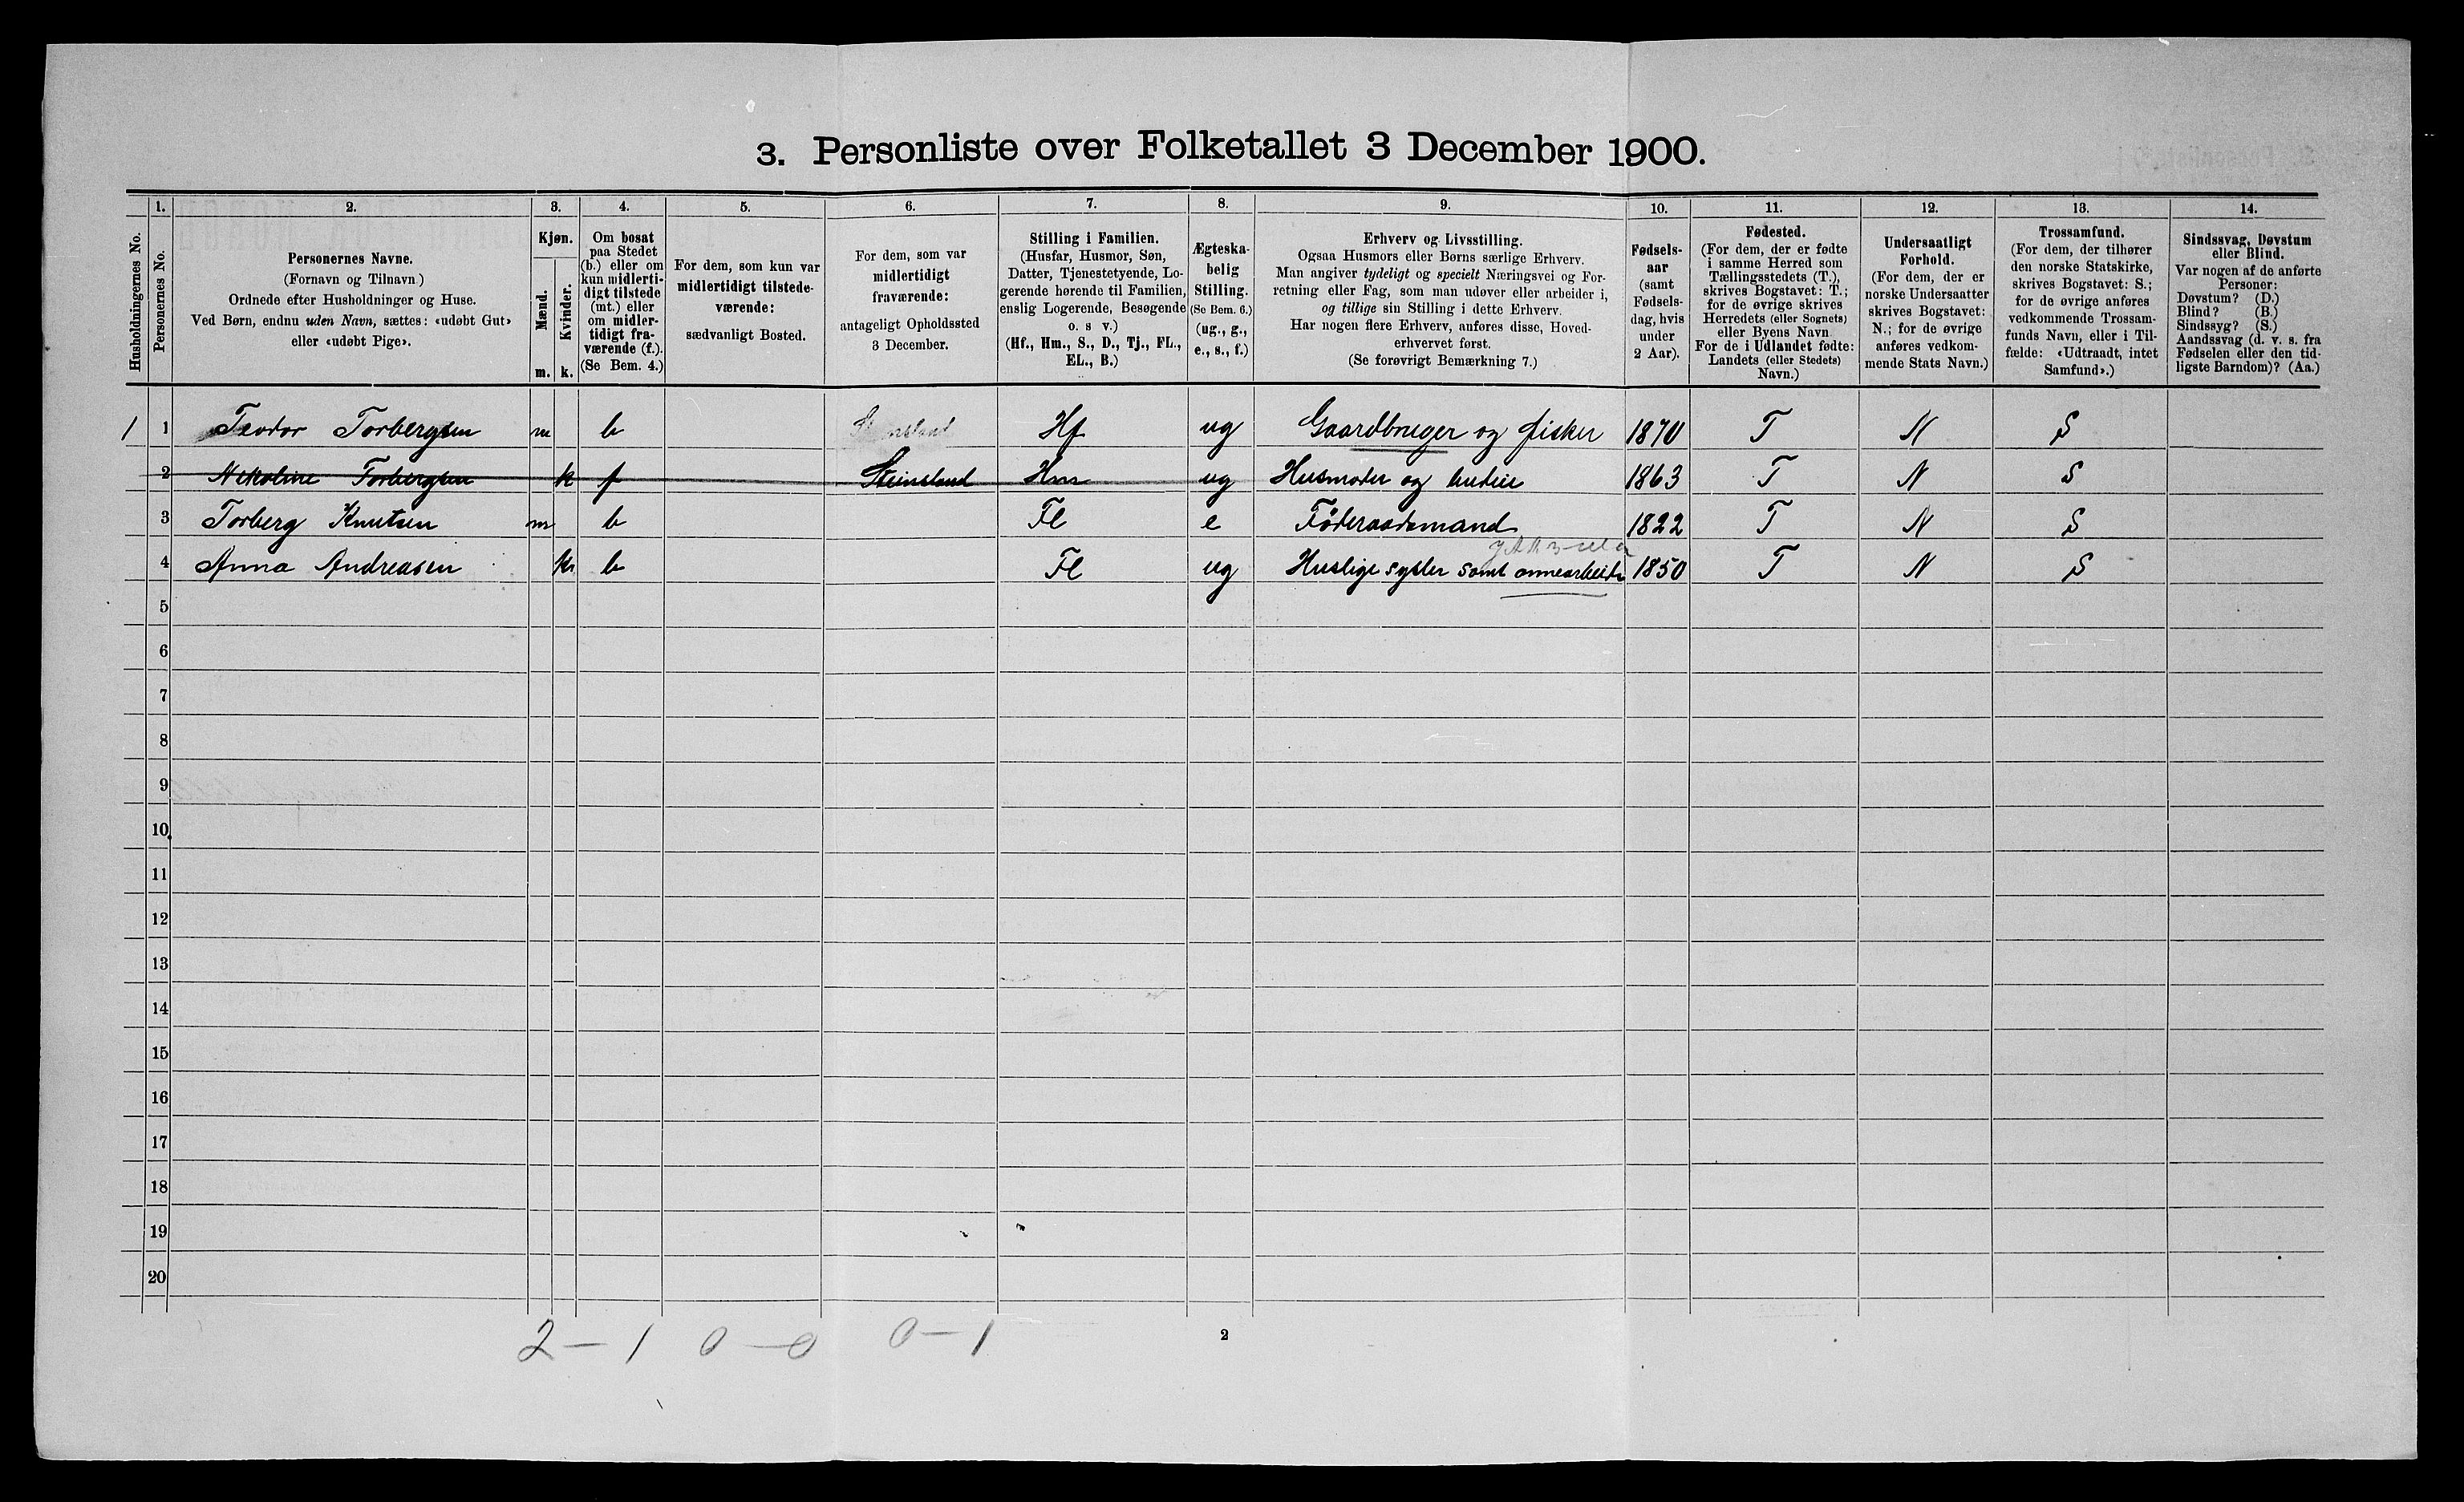 3. Personliste over Folketallet 3 December 1900.
Husholdningernes No.
1. Personernes No.
2. Personernes Navne.
(Fornavn og Tilnavn.)
Ordnede efter Husholdninger og Huse.
Ved Børn, endnu uden Navn, sættes: «udøbt Gut»
eller «udøbt Pige».
3. Kjøn.
Mænd. m.
Kvinder. k.
4. Om bosat
paa Stedet
(b.) eller om
kun midlerti-
digt tilstede
(mt.) eller
om midler-
tidigt fra-
værende (f.).
(Se Bem. 4.)
5. For dem, som kun var
midlertidigt tilstede-
værende:
sædvanligt Bosted.
6. For dem, som var
midlertidigt
fraværende:
antageligt Opholdssted
3 December.
7. Stilling i Familien.
(Husfar, Husmor, Søn,
Datter, Tjenestetyende, Lo-
gerende hørende til Familien,
enslig Logerende, Besøgende
o. s v.)
(Hf., Hm., S., D., Tj., FL.,
EL., B.)
8. Ægteska-
belig
Stilling.
(Se Bem. 6.)
(ug., g.,
e., s., f.)
9. Erhverv og Livsstilling.
Ogsaa Husmors eller Børns særlige Erhverv.
Man angiver tydeligt og specielt Næringsvei og For-
retning eller Fag, som man udøver eller arbeider i,
og tillige sin Stilling i dette Erhverv.
Har nogen flere Erhverv, anføres disse, Hoved-
erhvervet først.
(Se forøvrigt Bemærkning 7.)
10. Fødsels-
aar
(samt
Fødsels-
dag, hvis
under
2 Aar).
11. Fødested.
(For dem, der er fødte
i samme Herred som
Tællingsstedets (T.),
skrives Bogstavet: T.;
for de øvrige skrives
Herredets (eller Sognets)
eller Byens Navn
For de i Udlandet fødte:
Landets (eller Stedets)
Navn.)
12. Undersaatligt
Forhold.
(For dem, der er
norske Undersaatter
skrives Bogstavet:
N.; for de øvrige
anføres vedkom-
mende Stats Navn.)
13. Trossamfund.
(For dem, der tilhører
den norske Statskirke,
skrives Bogstavet: S.;
for de øvrige anføres
vedkommende Trossam-
funds Navn, eller i Til-
fælde: «Udtraadt, intet
Samfund».)
14. Sindssvag, Døvstum
eller Blind.
Var nogen af de anførte
Personer:
Døvstum? (D.)
Blind? (B.)
Sindssyg? (S.)
Aandssvag (d. v. s. fra
Fødselen eller den tid-
ligste Barndom)? (Aa.)
1 1 Teodor Torbergsen m b Steinsland Hf ug Gaardbruger og fisker 1870 T N S
2 Nikoline Torbergsen k f Steinsland Hm ug Husmoder og budeie 1863 T N S
3 Torberg Knutsen m b Fl e Föderaadsmand 1822 T N S
4 Anna Andreasen k b Fl ug Huslige sysler samt onnearbeide 1850 T N S
5
6
7
8
9
10
11
12
13
14
15
16
17
18
19
20
2 — 1 0 — 0 0 — 1
2